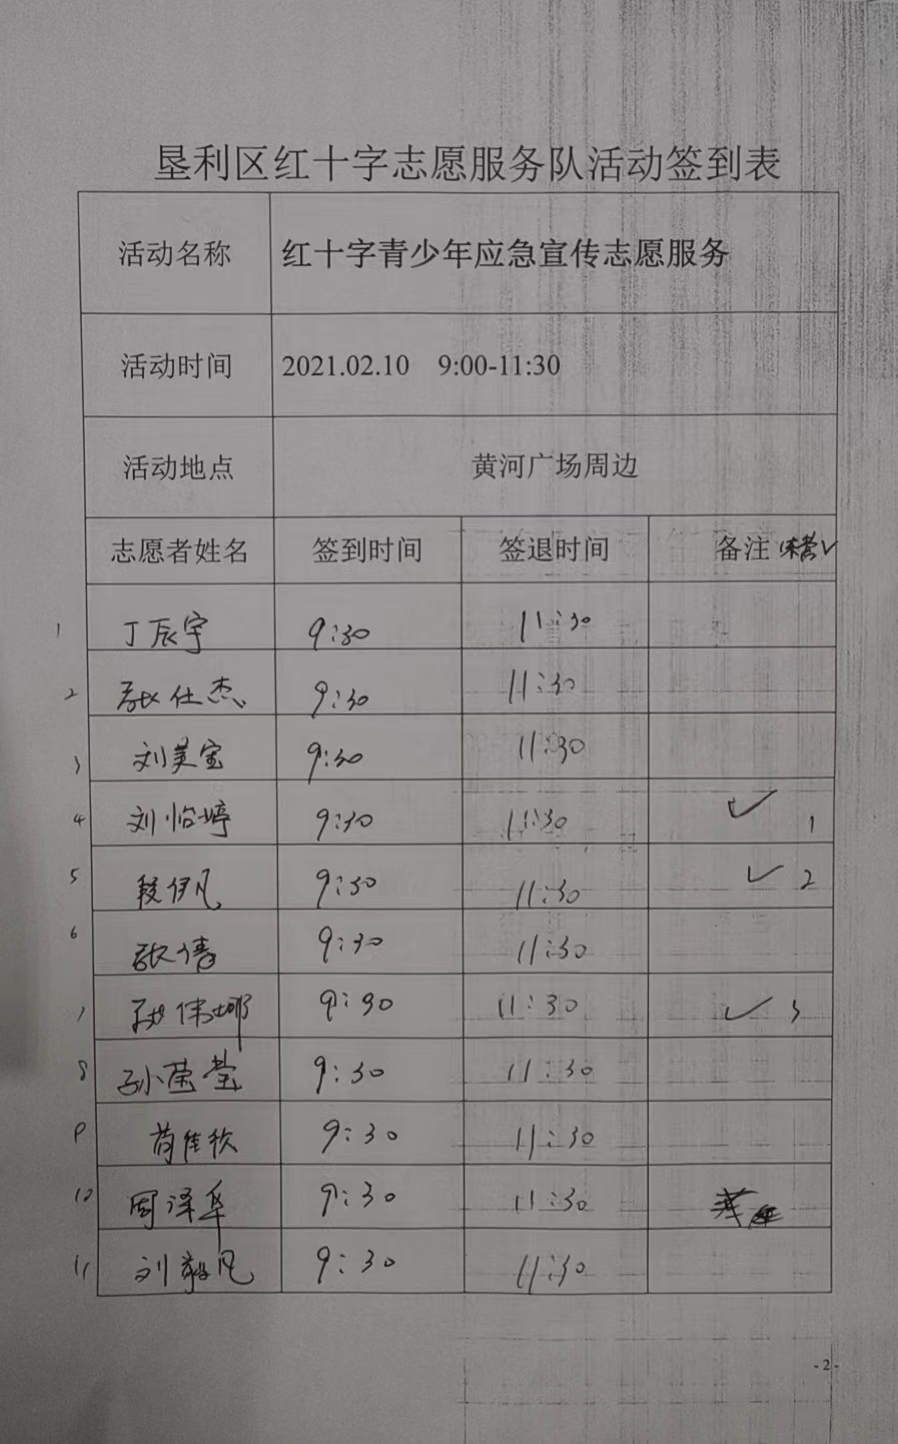 垦利区红十字志愿服务队活动签到表
活动名称 红十字青少年应急宣传志愿服务
活动时间 2021.02.10 9:00-11:30
活动地点 黄河广场周边
志愿者姓名 签到时间 签退时间 备注
1 丁辰宇 9:30 11:30
2 仕杰 9:30 11:30
3 刘美宝 9:30 11:30
4 刘怡婷 9:30 11:30 ✓ 1
5 段伊凡 9:30 11:30 ✓ 2
6 倩 9:30 11:30
7 伟娜 9:30 11:30 ✓ 3
8 孙莹莹 9:30 11:30
9 佳钦 9:30 11:30
10 周泽华 9:30 11:30
11 刘毅凡 9:30 11:30
- 2 -